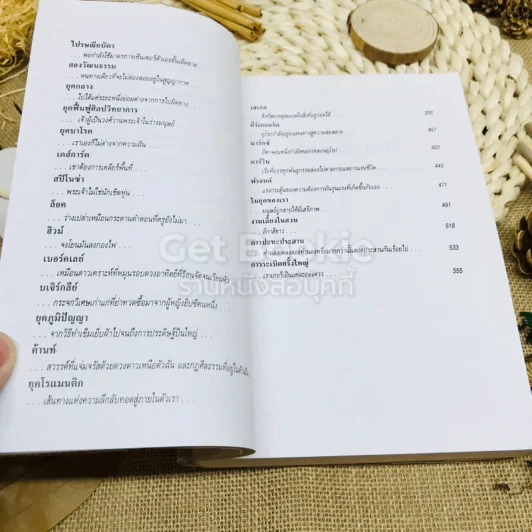 ไปรษณียบัตร
สองวัฒนธรรม
... หนทางเดียวที่จะไม่ล่องลอยอยู่ในสูญญากาศ
ยุคกลาง
... ไปได้แค่ระยะหนึ่งย่อมต่างจากการไปผิดทาง ...
ยุคฟื้นฟูศิลปวิทยาการ
... เจ้าผู้เป็นวงศ์วานพระเจ้าในร่างมนุษย์
ยุคบาโรค
... เราเองก็ไม่ต่างจากความฝัน
เดส์การ์ต
... เขาต้องการเคลียร์พื้นที่
สปิโนซ่า
... พระเจ้าไม่ใช่นักเชิดหุ่น
ล็อค
... ว่างเปล่าเหมือนกระดานดำตอนที่ครูยังไม่มา ...
ฮิวม์
... จงโยนมันลงกองไฟ
เบอร์คเลย์
... เหมือนดาวเคราะห์ที่หมุนรอบดวงอาทิตย์ที่ร้อนจัด
บเจิร์กลีย์
... กระจกวิเศษเก่าแก่ที่ย่าทวดซื้อมาจากผู้หญิงยิปซีคนหนึ่ง ...
ยุคภูมิปัญญา
... จากวิธีทำเข็มเย็บผ้าไปจนถึงการประดิษฐ์ปืนใหญ่ ...
ค้านท์
... สวรรค์ที่แจ่มจรัสด้วยดวงดาวเหนือตัวฉัน และกฎศีลธรรมที่อยู่ในตัวฉัน
ยุคโรแมนติก
... เส้นทางแห่งความลึกลับทอดสู่ภายในตัวเรา ...
เฮเกล
393
คีร์เคกอร์ด
407
มาร์กซ์
422
ดาร์วิน
443
ฟรอยด์
471
ในยุคของเรา
491
... มนุษย์ถูกสาปให้มีเสรีภาพ ...
งานเลี้ยงในสวน
518
... อีกาสีขาว
การประทะประสาน
533
การระเบิดครั้งใหญ่
555
... เราเองก็เป็นแค่ละอองดาว ...
Get Bookie
ร้านหนังสือบุคกี้